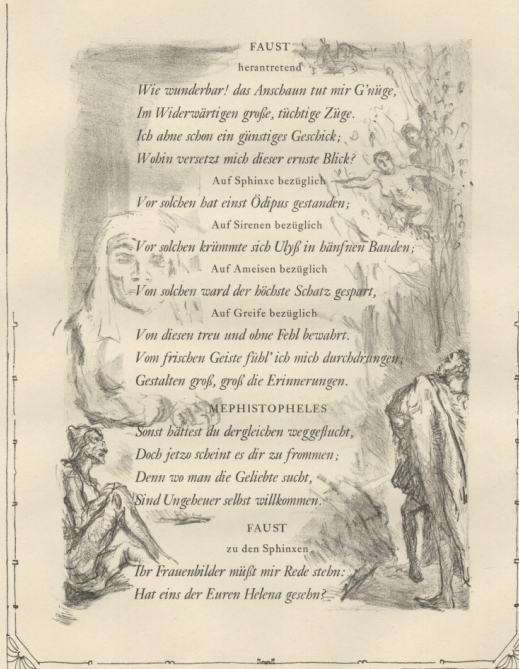 FAUST
herantretend
Wie wunderbar! das Anschaun tut mir G'nüge,
Im Widerwärtigen große, tüchtige Züge.
Ich ahne schon ein günstiges Geschick;
Wohin versetzt mich dieser ernste Blick?
Auf Sphinxe bezüglich
Vor solchen hat einst Ödipus gestanden;
Auf Sirenen bezüglich
Vor solchen krümmte sich Ulyß in hänfnen Banden;
Auf Ameisen bezüglich
Von solchen ward der höchste Schatz gespart,
Auf Greife bezüglich
Von diesen treu und ohne Fehl bewahrt.
Vom frischen Geiste fühl' ich mich durchdrungen,
Gestalten groß, groß die Erinnerungen.
MEPHISTOPHELES
Sonst hättest du dergleichen weggeflucht,
Doch jetzo scheint es dir zu frommen;
Denn wo man die Geliebte sucht,
Sind Ungeheuer selbst willkommen.
FAUST
zu den Sphinxen
Ihr Frauenbilder müßt mir Rede stehn:
Hat eins der Euren Helena gesehn?